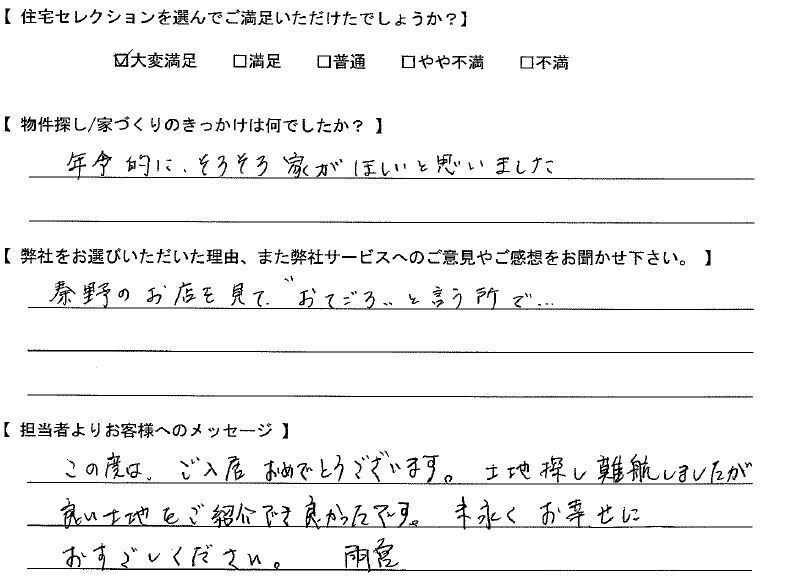 【 住宅セレクションを選んでご満足いただけたでしょうか?】
☑大変満足 □満足 □普通 □やや不満 □不満
【 物件探し/家づくりのきっかけは何でしたか? 】
年令的に、そろそろ家がほしいと思いました
【 弊社をお選びいただいた理由、また弊社サービスへのご意見やご感想をお聞かせ下さい。 】
秦野のお店を見て、"おてごろ"と言う所で…
【 担当者よりお客様へのメッセージ 】
この度は、ご入居おめでとうございます。土地探し難航しましたが
良い土地をご紹介でき良かったです。末永くお幸せに
おすごしください。 雨宮